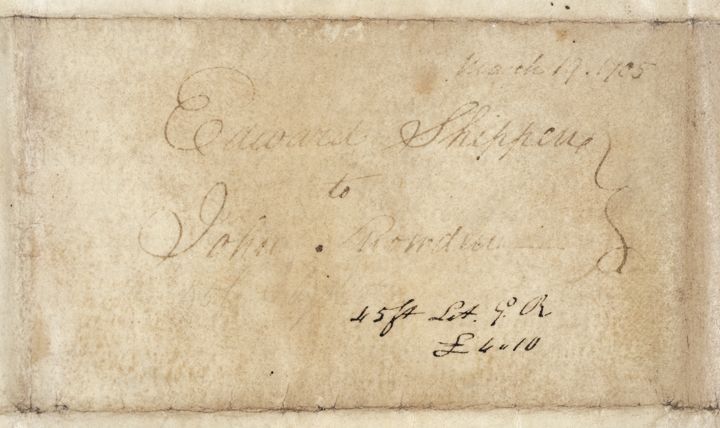 March 19. 1705
Edward Shippen
to
John Rowden
45 ft Lot. G. R
£ 4 " 10